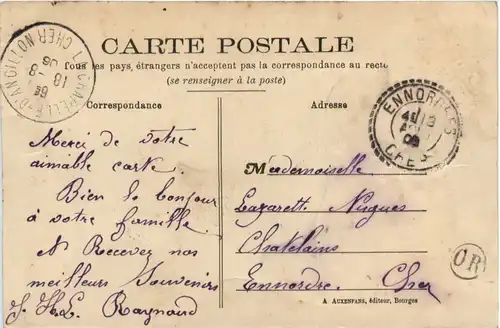 CARTE POSTALE
Tous les pays étrangers n'acceptent pas la correspondance au recto
(se renseigner à la poste)
Correspondance
Adresse
Merci de votre
aimable carte.
Bien le bonjour
à votre famille
Recevez nos
meilleurs Souvenirs
J. H. L. Raynaud
Mademoiselle
Lazarett Nugues
Chatelains
Ennordre. Cher
A. AUXENFANS, éditeur, Bourges
ENNORDRES
CHER
LA CHAPELLE-D'ANGILLON
CHER
18 -8
OR